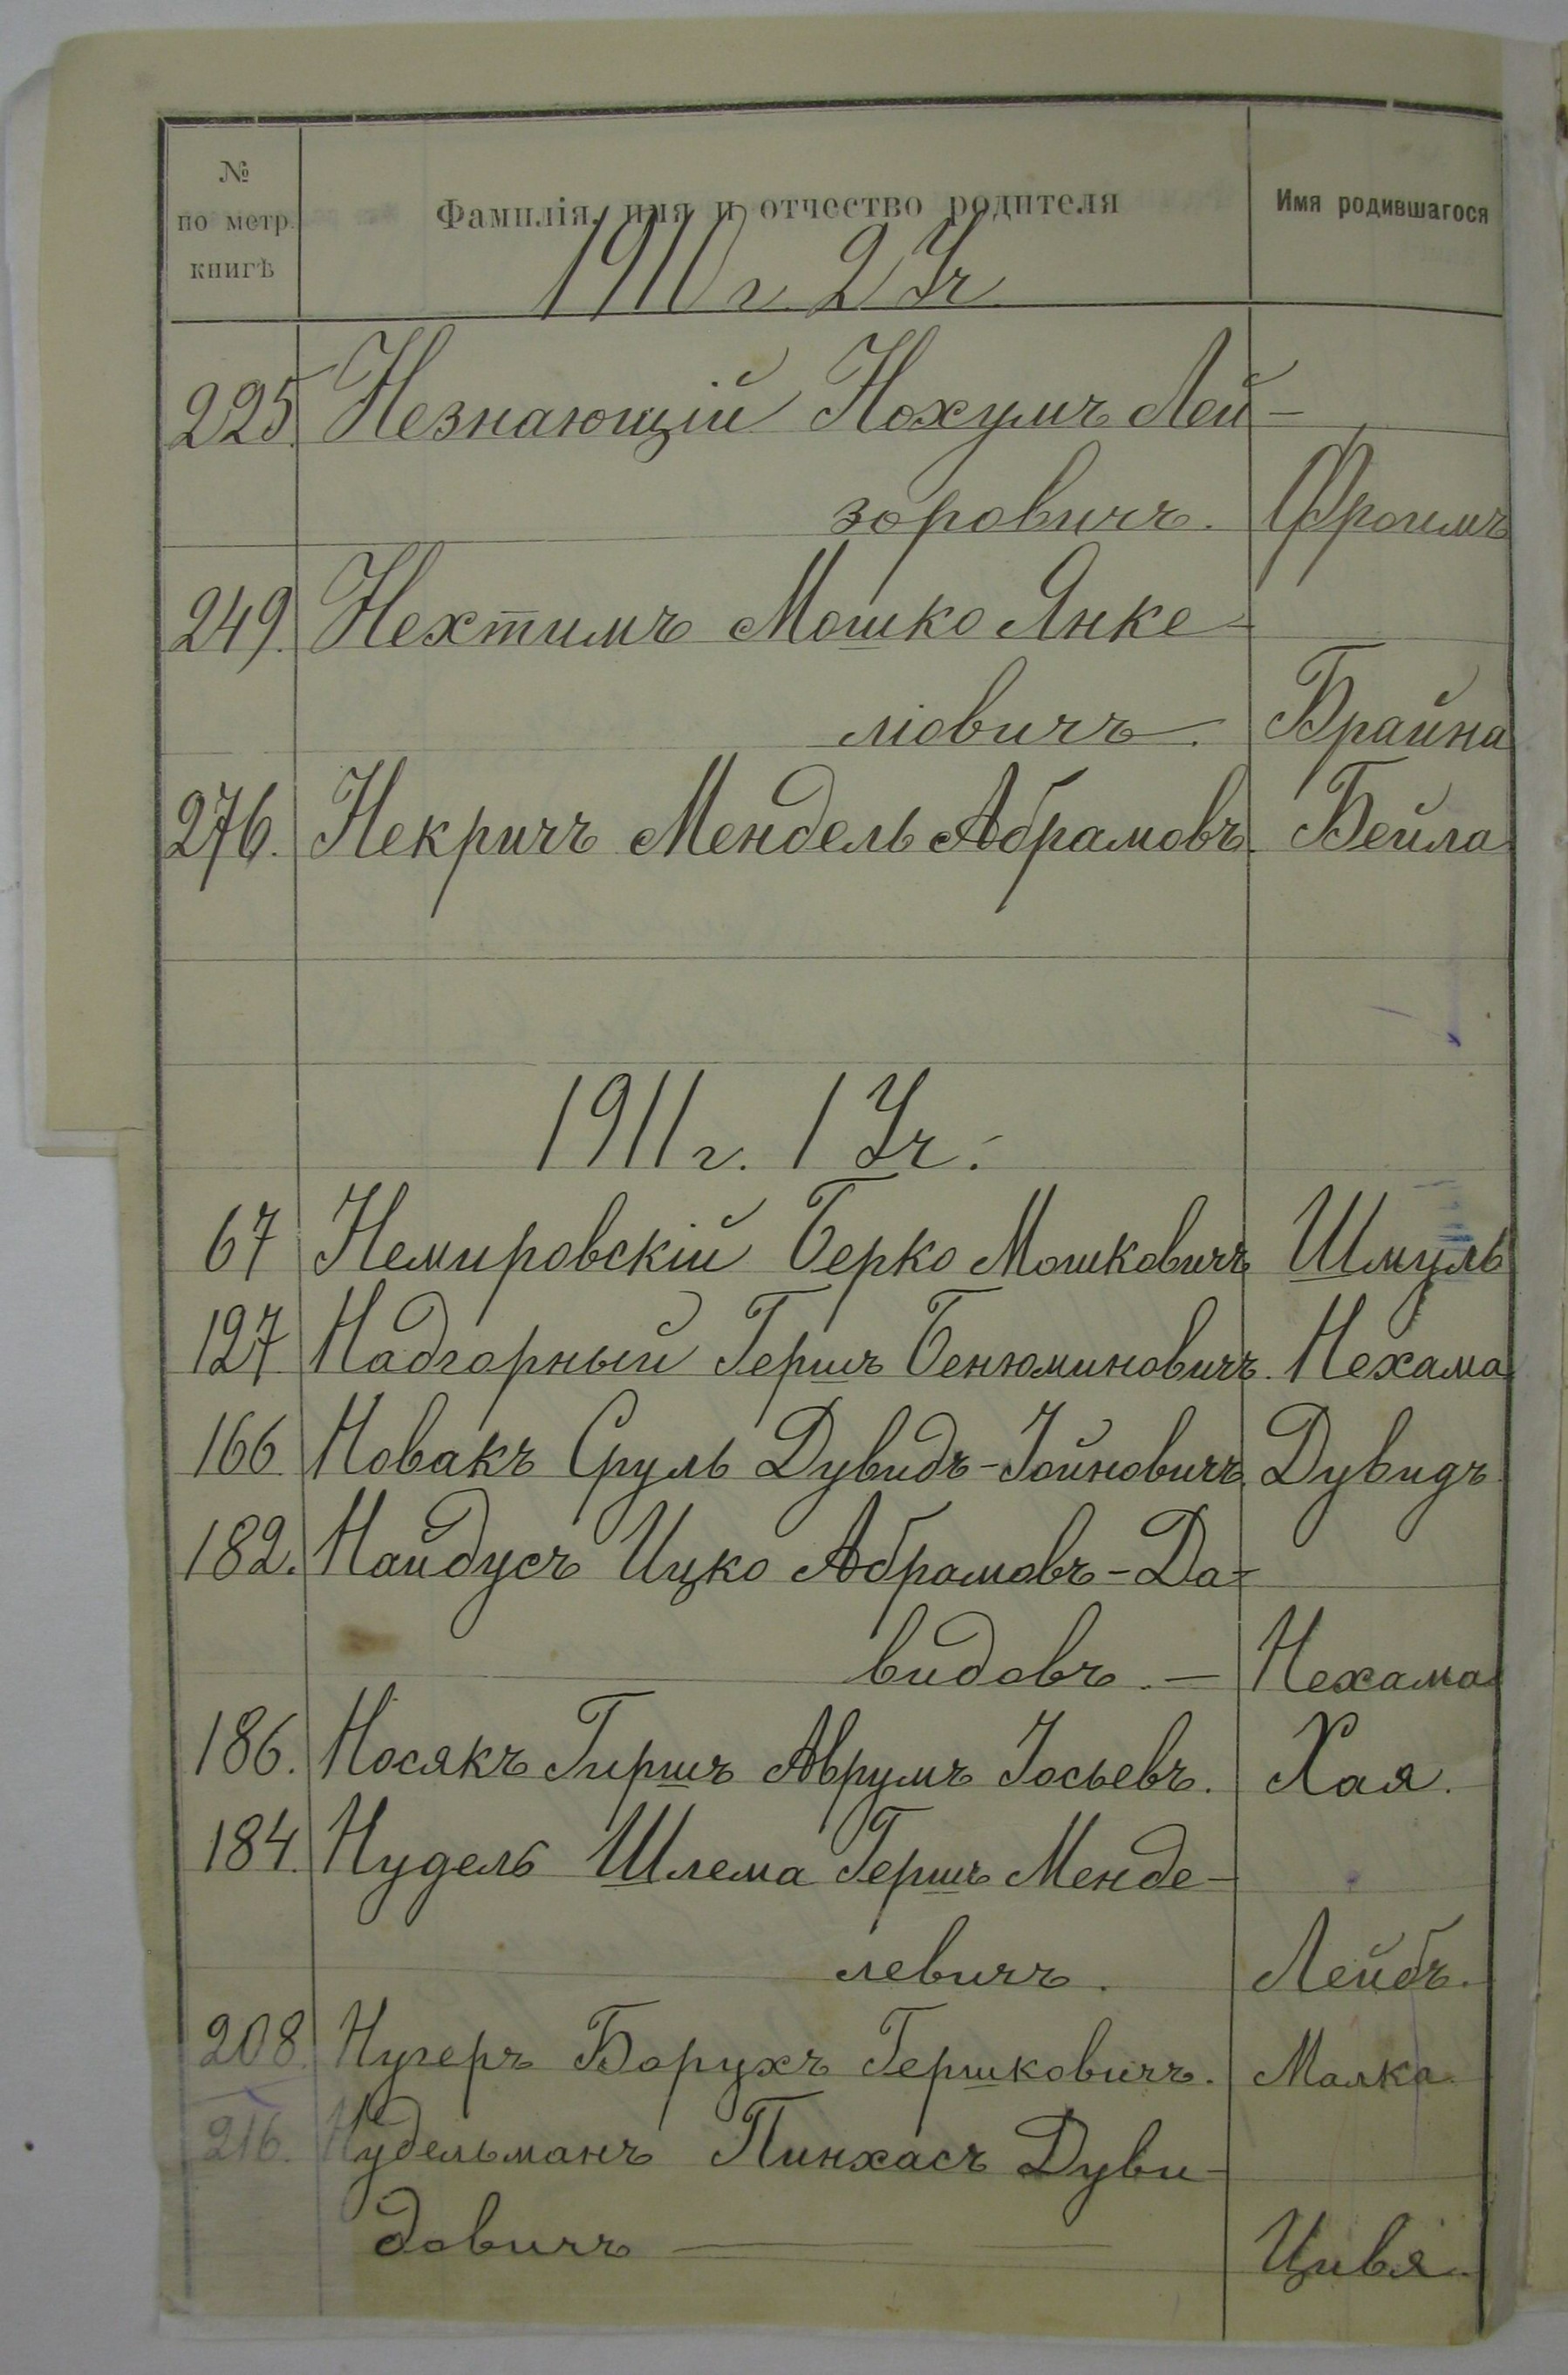 №
по метр.
книгѣ
Фамилія, имя и отчество родителя
Имя родившагося
1910 г. 2 Уч.
225. Незнающій Нохумъ Лей-
зоровичъ. Фроимъ
249. Нехтимъ Мошко Янке-
лiовичъ. Брайна
276. Некричъ Мендель Абрамовъ. Бейла
1911 г. 1 Уч.
67 Немировскій Берко Мошковичъ Шмуль
127 Надгорный Гершъ Бенюминовичъ. Нехама
166 Новакъ Сруль Дувидъ-Iойновичъ. Дувидъ
182. Найдусъ Ицко Абрамовъ-Да-
видовъ. — Нехама
186. Носякъ Гиршъ Аврумъ Iосьевъ. Хая.
184. Нудель Шлема Гершъ Менде-
левичъ. Лейбъ.
208. Нугеръ Борухъ Гершковичъ. Малка.
216. Нудельманъ Пинхасъ Дуви-
довичъ — Цивя.